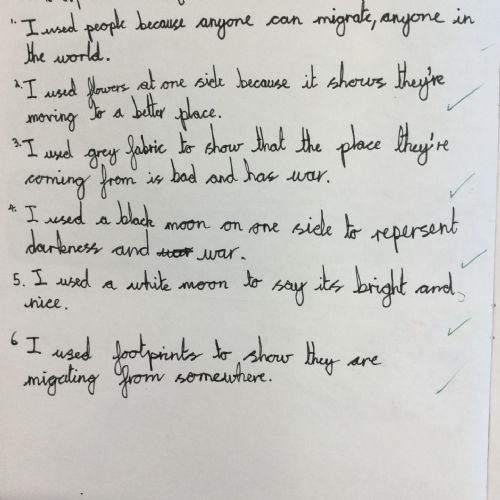 1. I used people because anyone can migrate, anyone in
the world.
2. I used flowers at one side because it shows they're
moving to a better place.
3. I used grey fabric to show that the place they're
coming from is bad and has war.
4. I used a black moon on one side to repersent
darkness and war war.
5. I used a white moon to say its bright and
nice.
6 I used footprints to show they are
migating from somewhere.